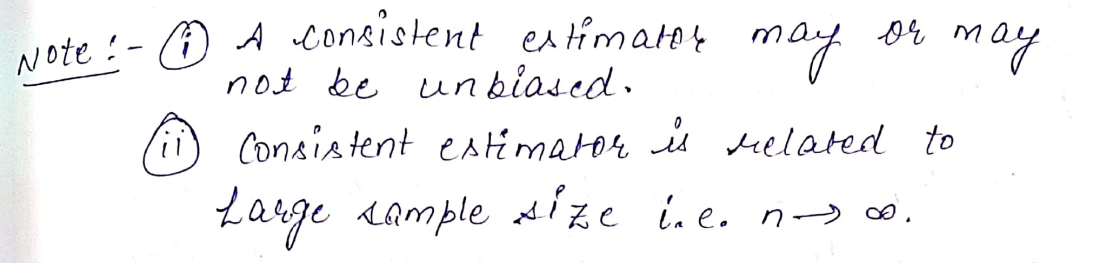 Note :- (i) A consistent estimator may or may
not be unbiased.
(ii) Consistent estimator is related to
Large sample size i.e. n → ∞.